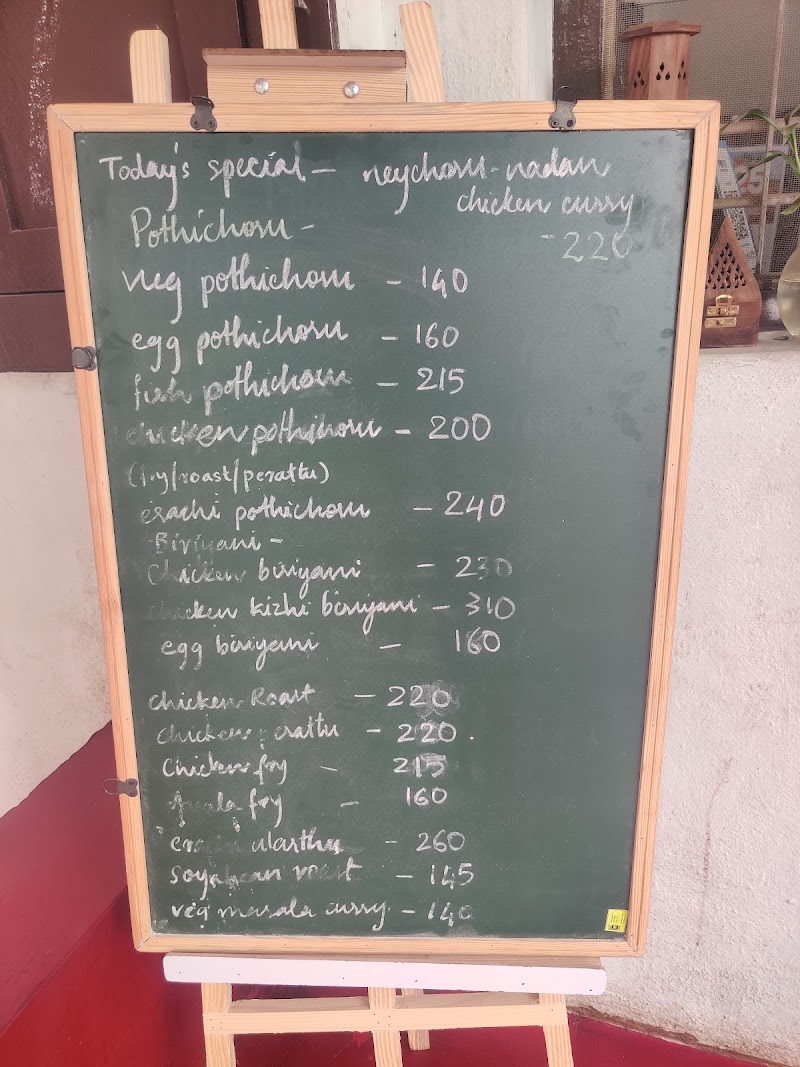 Today's special - neychoru-nadan
chicken curry
- 220
Pothichoru -
veg pothichoru - 140
egg pothichoru - 160
fish pothichoru - 215
chicken pothichoru - 200
(fry/roast/perattu)
erachi pothichoru - 240
Biriyani -
Chicken biriyani - 230
chicken kizhi biriyani - 310
egg biriyani - 160
chicken Roast - 220
chicken perattu - 220.
Chicken fry - 215
fry - 160
ularthu - 260
soyabean roast - 145
veg masala curry - 140